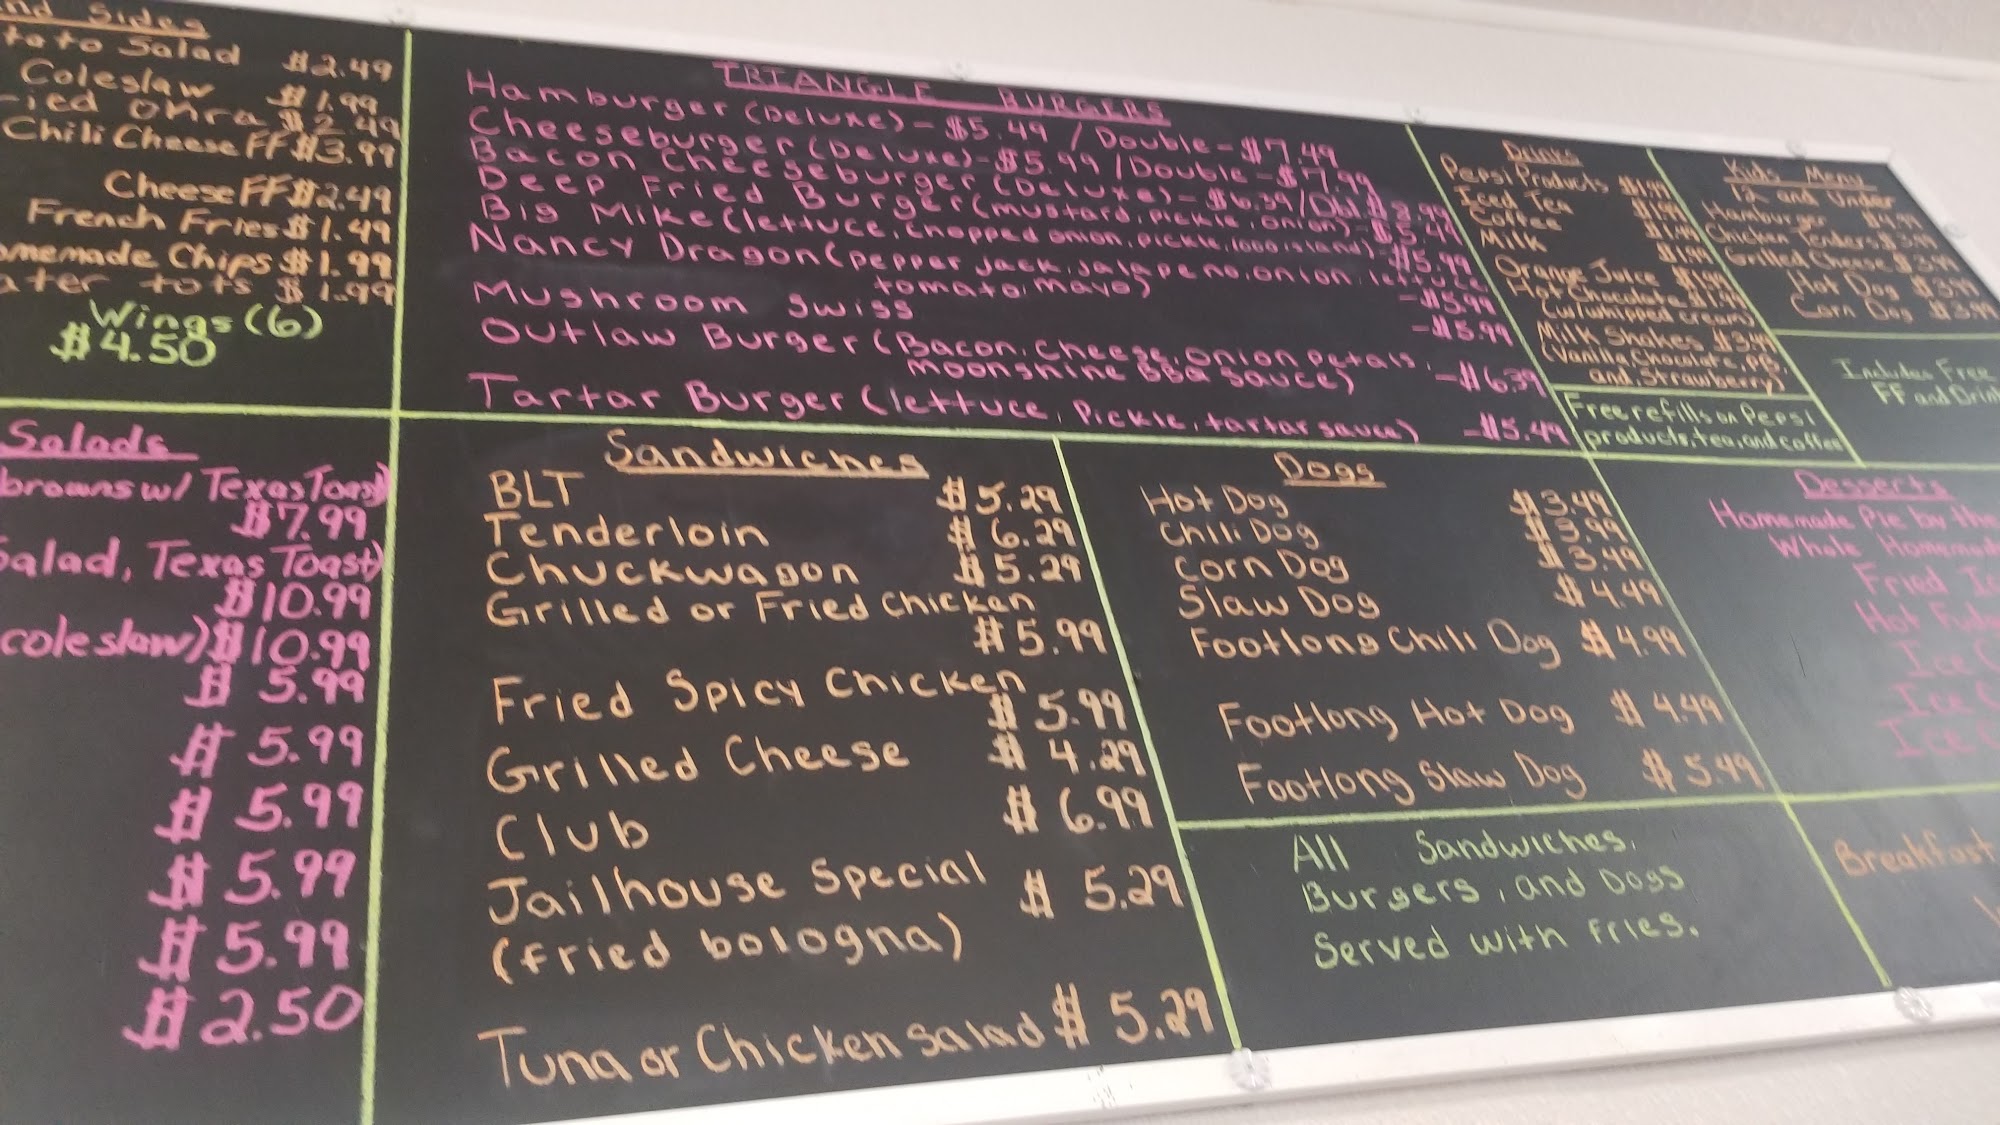 nd Sides
tato Salad $2.49
Coleslaw $1.99
ried Okra $2.49
Chili Cheese FF $3.99
Cheese FF $2.49
French Fries $1.49
omemade Chips $1.99
ater tots $1.99
Wings (6)
$4.50
Salads
browns w/ Texas Toast)
$7.99
Salad, Texas Toast)
$10.99
coleslaw) $10.99
$5.99
$5.99
$5.99
$5.99
$5.99
$2.50
TRIANGLE BURGERS
Hamburger (Deluxe) - $5.49 / Double - $7.49
Cheeseburger (Deluxe) - $5.99 / Double - $7.99
Bacon Cheeseburger (Deluxe) - $6.39 / Dbl
Deep Fried Burger (mustard, pickle, onion) - $5.49
Big Mike (lettuce, chopped onion, pickle, 1000 island) - $5.99
Nancy Dragon (pepper jack, jalapeno, onion, lettuce
tomato, mayo) - $5.99
Mushroom Swiss - $5.99
Outlaw Burger (Bacon, Cheese, onion petals,
Moonshine BBQ sauce) - $6.39
Tartar Burger (lettuce, Pickle, tartar sauce) - $5.49
Sandwiches
BLT $5.29
Tenderloin $6.29
Chuckwagon $5.29
Grilled or Fried Chicken
$5.99
Fried Spicy Chicken
$5.99
Grilled Cheese $4.29
Club $6.99
Jailhouse Special $5.29
(fried bologna)
Tuna or Chicken Salad $5.29
Dogs
Hot Dog $3.49
Chili Dog $3.99
Corn Dog $3.49
Slaw Dog $4.49
Footlong Chili Dog $4.99
Footlong Hot Dog $4.49
Footlong Slaw Dog $5.49
All Sandwiches,
Burgers, and Dogs
Served with Fries.
Drinks
Pepsi Products $1.99
Iced Tea $1.99
Coffee $1.99
Milk $1.99
Orange Juice $1.99
Hot Chocolate $1.99
(w/whipped cream)
Milk Shakes $3.49
(Vanilla, Chocolate, PB,
and, Strawberry)
Free refills on Pepsi
products, tea, and coffee
Kids Menu
12 and Under
Hamburger
Chicken Tenders $3.99
Grilled Cheese $3.99
Hot Dog $3.99
Corn Dog $3.99
Includes Free
FF and Drin
Desserts
Homemade Pie by the
Whole Homemad
Fried Ice
Hot Fudg
Ice C
Ice C
Ice C
Breakfast